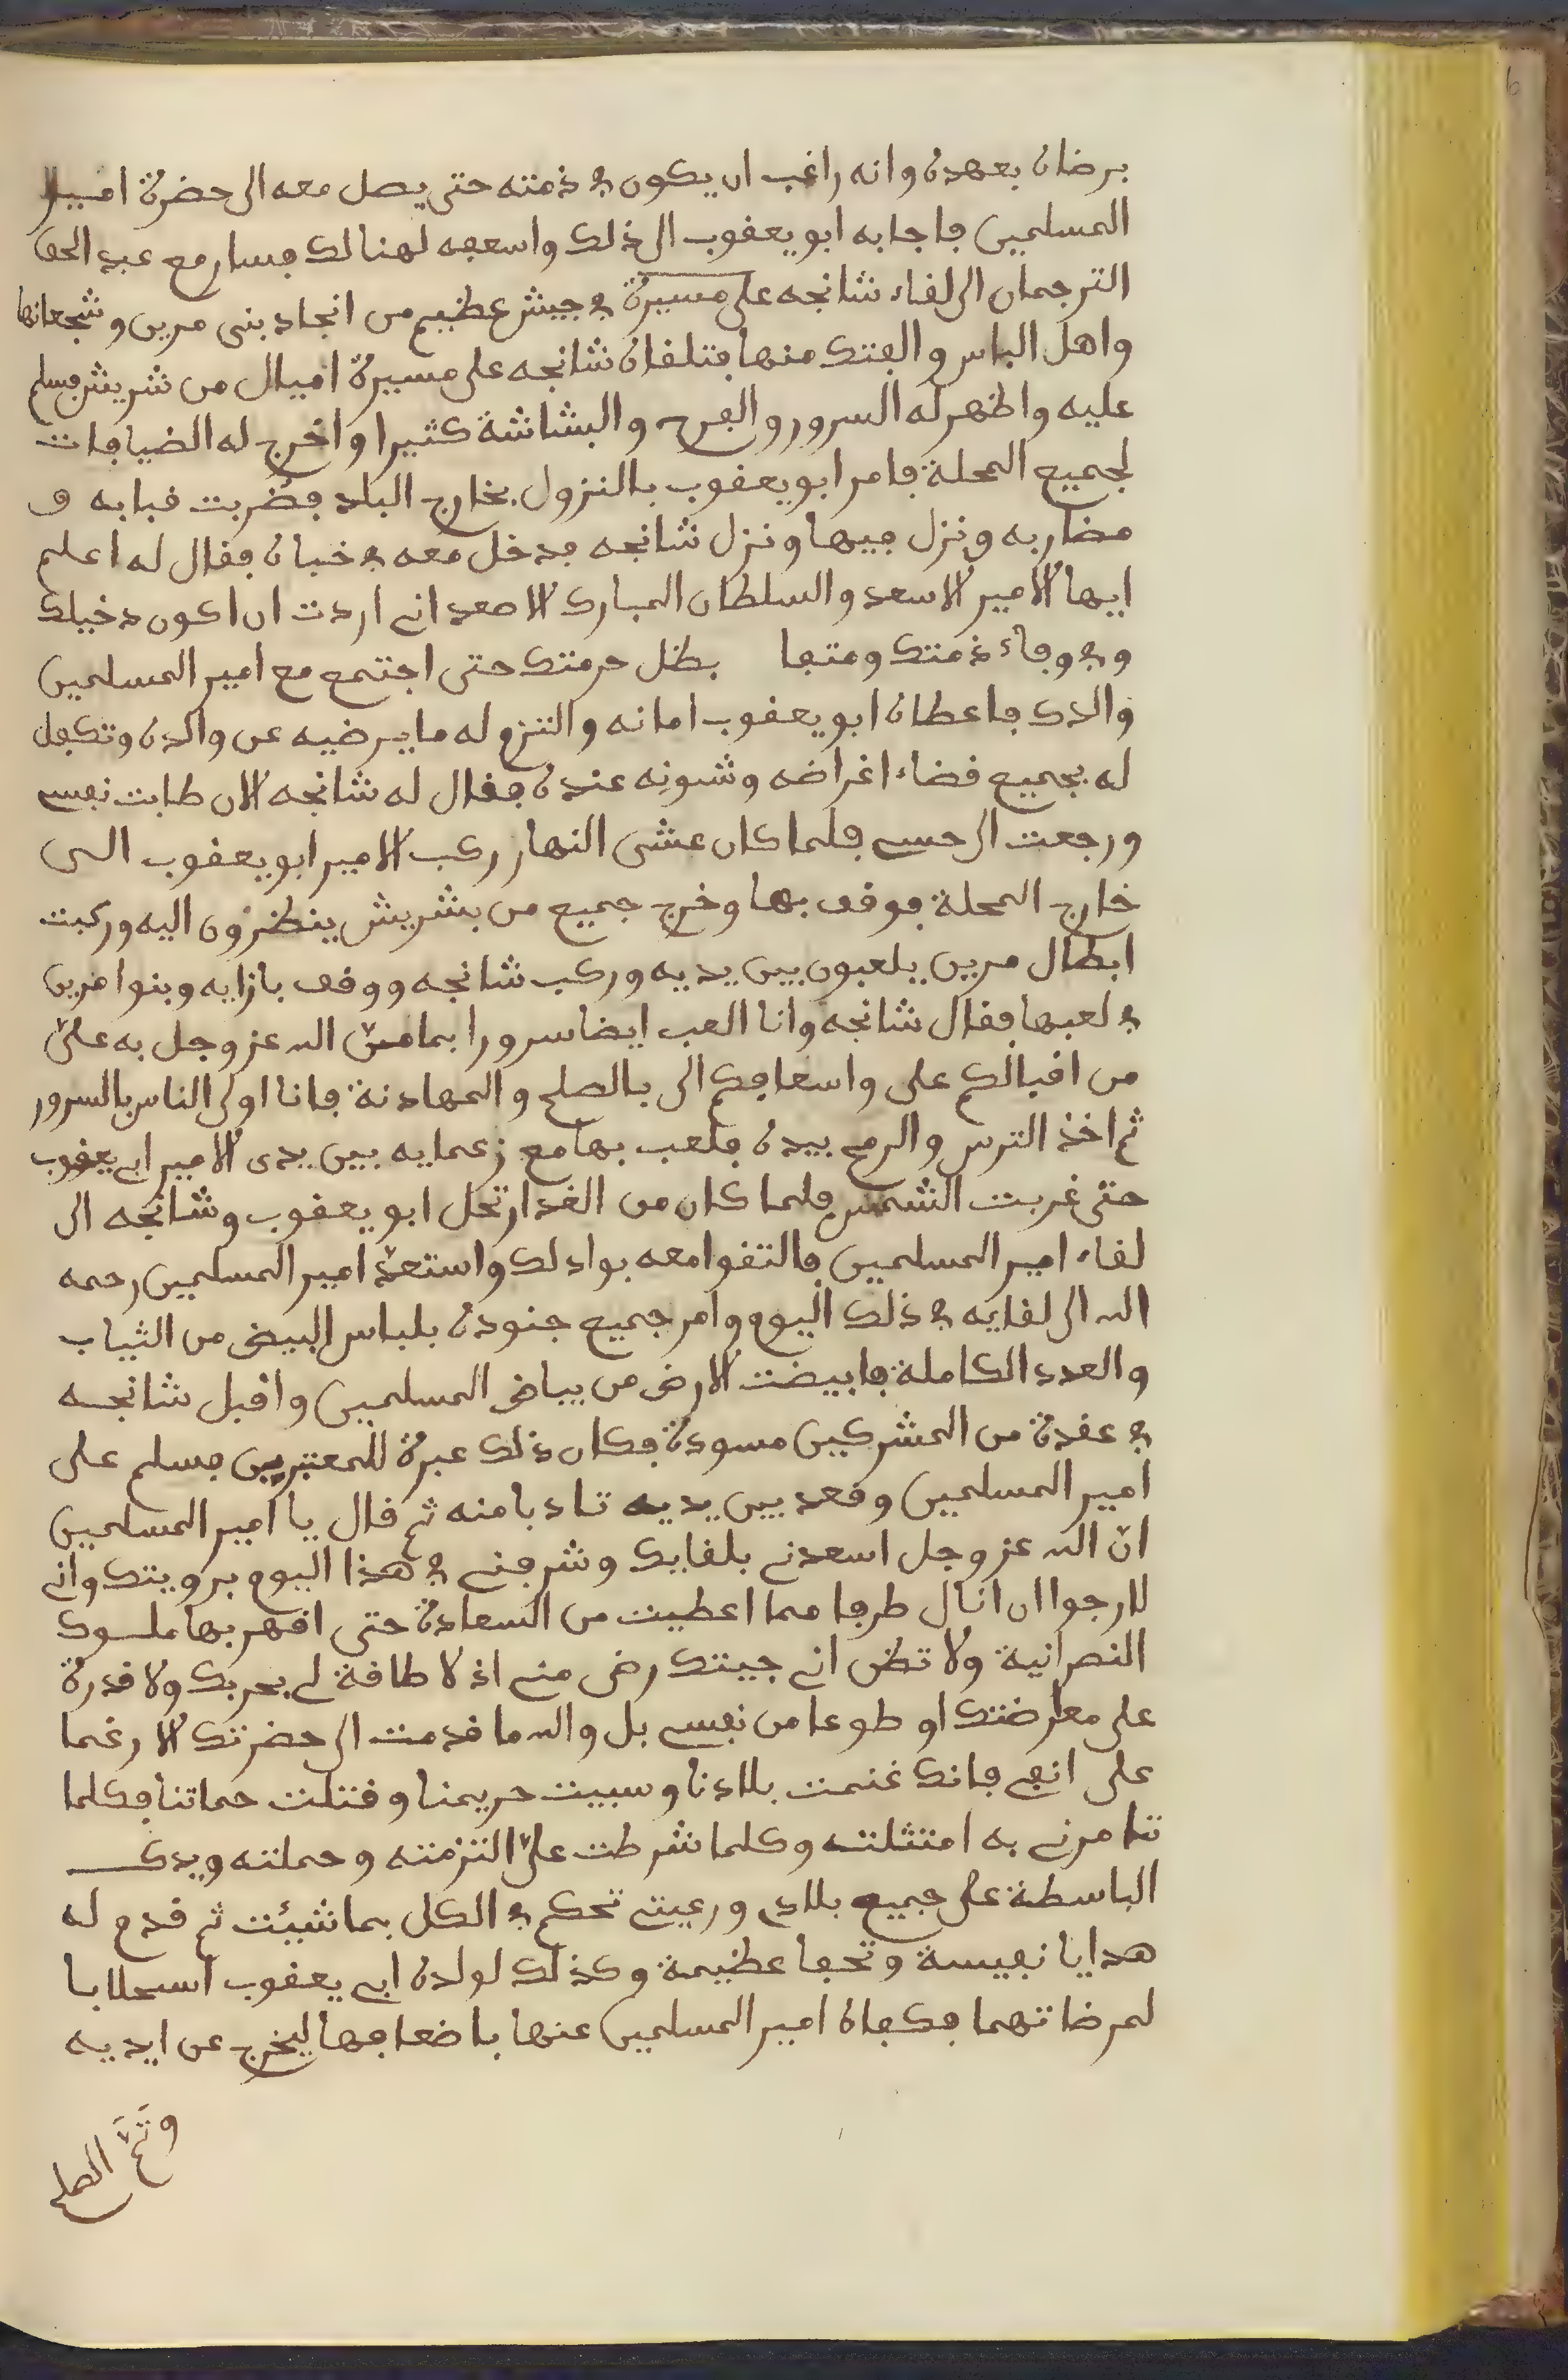 برضاه بعهده وانه راغب ان يكون في ذمته حتى يصل معه الى حضرة امير
المسلمين فاجابه ابو يعقوب الى ذلك واسعفه لهنالك فسار مع عبد الحق
الترجمان الى لقاء شانجه على مسيرة في جيش عظيم من انجاد بنى مرين وشجعانها
واهل الباس والفتك منها فتلقاه شانجه على مسيرة اميال من شريش فسلم
عليه واظهر له السرور والفرح والبشاشة كثيرا واخرج له الضيافات
لجميع المحلة فامر ابو يعقوب بالنزول بخارج البلد فضربت قبابه و
مضاربه ونزل فيها ونزل شانجه فدخل معه في خباه فقال له اعلم
ايها الامير الاسعد والسلطان المبارك الاصعد انى اردت ان اكون دخيلك
وفي وفاء ذمتك ومتفيا بظل حرمتك حتى اجتمع مع امير المسلمين
والدك فاعطاه ابو يعقوب امانه والتزم له ما يرضيه عن والده وتكفل
له بجميع قضاء اغراضه وشونه عنده فقال له شانجه الان طابت نفسى
ورجعت الى حسى فلما كان عشى النهار ركب الامير ابو يعقوب الى
خارج المحلة فوقف بها وخرج جميع من بشريش ينظرون اليه وركبت
ابطال مرين يلعبون بين يديه وركب شانجه ووقف بازايه وبنوا مرين
في لعبها فقال شانجه وانا العب ايضا سرورا بما منّ الله عز وجل به علىّ
من اقبالكم على واسعافكم الى بالصلح والمهادنة فانا اولى الناس بالسرور
ثم اخذ الترس والرمح بيده فلعب بها مع زعمايه بين يدى الامير ابى يعقوب
حتى غربت الشمس فلما كان من الغد ارتحل ابو يعقوب وشانجه الى
لقاء امير المسلمين فالتقوا معه بواد لك واستعدّ امير المسلمين رحمه
الله الى لقايه في ذلك اليوم وامر جميع جنوده بلباس البيض من الثياب
والعدد الكاملة فابيضت الارض من بياض المسلمين واقبل شانجه
في عقدة من المشركين مسودة فكان ذلك عبرة للمعتبرين فسلم على
امير المسلمين وقعد بين يديه تادبا منه ثم قال يا امير المسلمين
انّ الله عز وجل اسعدنى بلقايك وشرفنى في هذا اليوم برويتك وانى
لارجوا ان انال طرفا مما اعطيت من السعادة حتى اقهر بها ملوك
النصرانية ولا تظن انى جيتك رضى منى اذ لا طاقة لى بحربك ولا قدرة
على معارضتك او طوعا من نفسى بل والله ما قدمت الى حضرتك الا رغما
على انفى فانك غنمت بلادنا وسبيت حريمنا وقتلت حماتنا فكلما
تامرنى به امتثلته وكلما شرطت علىّ التزمته وحملته ويدك
الباسطة على جميع بلادى ورعيتى تحكم في الكل بما شيئت ثم قدم له
هدايا نفيسة وتحفا عظيمة وكذلك لولده ابى يعقوب استجلابا
لمرضاتهما فكفاه امير المسلمين عنها باضعافها ليخرج عن ايديه
وتَمَّ الصلح